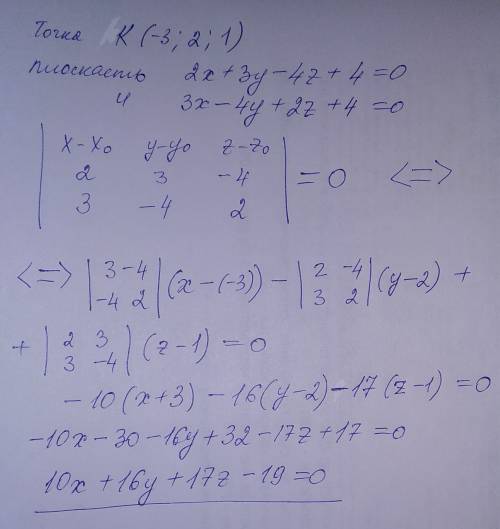 Точка K (-3; 2; 1)
плоскасть 2x+3y-4z+4=0
и 3x-4y+2z+4=0
| x-x₀ y-y₀ z-z₀ |
| 2 3 -4 | = 0 <=>
| 3 -4 2 |
<=> |3 -4; -4 2| (x-(-3)) - |2 -4; 3 2| (y-2) +
+ |2 3; 3 -4| (z-1) = 0
-10(x+3) - 16(y-2) - 17(z-1) = 0
-10x-30-16y+32-17z+17=0
10x+16y+17z-19=0